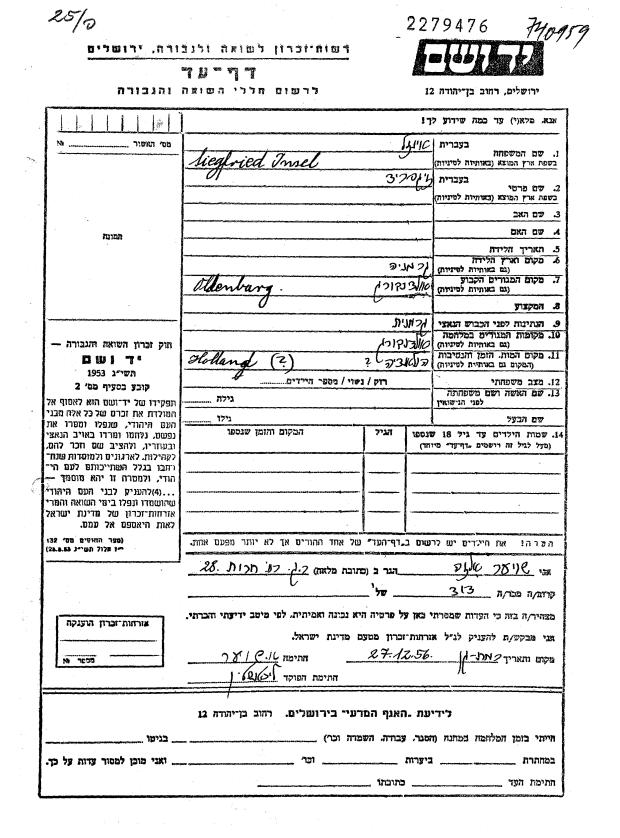 25/פ
2279476
740959
רשות-זכרון לשואה ולגבורה, ירושלים
דף-עד
לרשום חללי השואה והגבורה
יד ושם
ירושלים, רחוב בן-יהודה 12
אנא, מלא(י) עד כמה שידוע לך!
מס' האשור № 
תמונה
1. שם המשפחה בעברית
בשפת ארץ המוצא (באותיות לטיניות) Siegfried Insel
2. שם פרטי בעברית
בשפת ארץ המוצא (באותיות לטיניות)
3. שם האב
4. שם האם
5. תאריך הלידה
6. מקום וארץ הלידה גרמניה
(גם באותיות לטיניות)
7. מקום המגורים הקבוע Oldenburg.
(גם באותיות לטיניות)
8. המקצוע
9. הנתינות לפני הכבוש הנאצי גרמנית
10. מקומות המגורים במלחמה
(גם באותיות לטיניות)
11. מקום המות, הזמן והנסיבות ? Holland (?)
(המקום גם באותיות לטיניות)
12. מצב משפחתי רוק / נשוי / מספר הילדים
13. שם האשה ושם משפחתה גילה
לפני הנישואין
שם הבעל גילו
14. שמות הילדים עד גיל 18 שנספו הגיל המקום והזמן שנספו
(מעל לגיל זה רושמים "דף-עד" מיוחד)
הערה! את הילדים יש לרשום ב"דף-העד" של אחד ההורים אך לא יותר מפעם אחת.
חוק זכרון השואה והגבורה —
יד ושם
תשי"ג 1953
קובע בסעיף מס' 2
תפקידו של יד-ושם הוא לאסוף אל
המולדת את זכרם של כל אלה מבני
העם היהודי, שנפלו ומסרו את
נפשם, נלחמו ומרדו באויב הנאצי
ובעוזריו, ולהציב שם וזכר להם,
לקהילות, לארגונים ולמוסדות שנח-
רבו בגלל השתייכותם לעם הי-
הודי, ולמטרה זו יהא מוסמך —
...(4) להעניק לבני העם היהודי
שהושמדו ונפלו בימי השואה והמרי
אזרחות-זכרון של מדינת ישראל
לאות היאספם אל עמם.
(ספר החוקים מס' 132
י"ז אלול תשי"ג 28.8.53)
אני שניצר הגר ב (כתובת מלאה) ר.ג. רח' חרות 28
קרוב/ה מכר/ה דוד של
מצהיר/ה בזה כי העדות שמסרתי כאן על פרטיה היא נכונה ואמיתית, לפי מיטב ידיעתי והכרתי.
אני מבקש/ת להעניק לנ"ל אזרחות-זכרון מטעם מדינת ישראל.
מקום ותאריך רמת-גן 27.12.56. חתימה
חתימת הפוקד
אזרחות-זכרון הוענקה
מספר №
לידיעת "האגף המדעי" בירושלים, רחוב בן-יהודה 12
הייתי בזמן המלחמה במחנה (הסגר, עבודה, השמדה וכו') בגיטו
במחתרת ביערות וכו' ואני מוכן למסור עדות על כך.
חתימת העד כתובתו